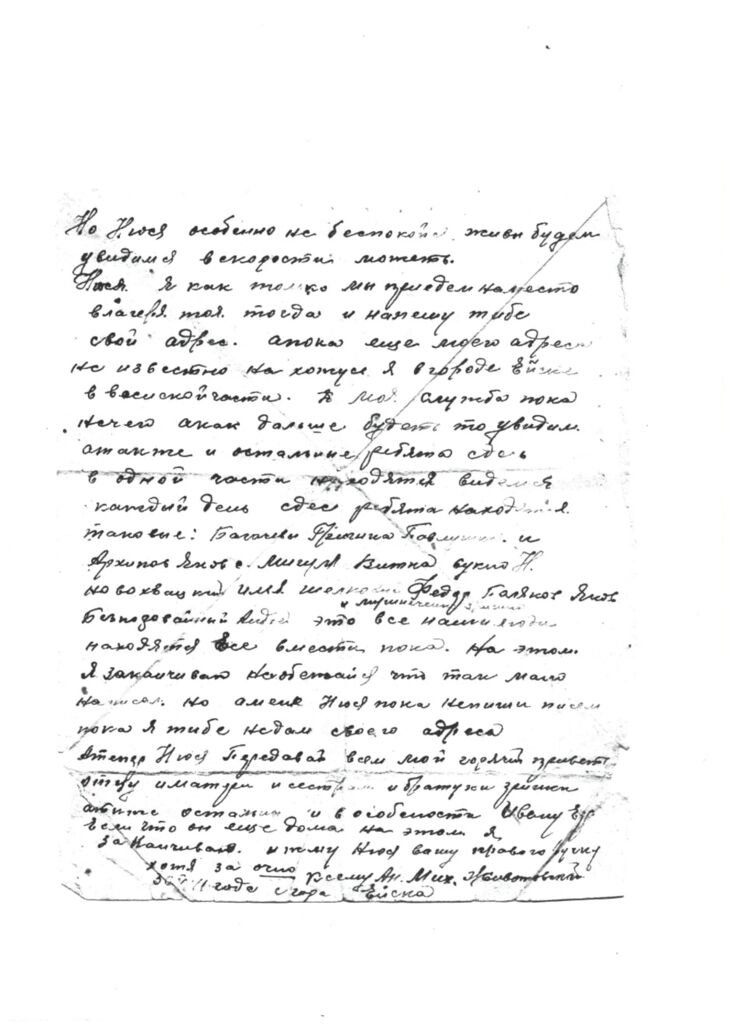 Но Нюся особенно не беспокойся живы будем
увидимся вскорости может.
Нюся Я как только мы приедем на место
в лагеря тоя тогда и напишу тибе
свой адрес. а пока еще моего адреса
не известно на хожусь я в городе Ейске
в воиской части. моя служба пока
нечего а как дальше будеть то увидим.
а также и остальние ребята сдесь
в одной части находятся видемся
каждый день сдес ребята находятся
таковые: Багачевы Гришина и
Архипов Яков
Федор Яков
Андрей это все наши люди
находятся все вместе пока. На этом.
Я заканчиваю необежайся что так мало
написал. но а мене Нюся пока непиши писем
пока я тибе недам своего адреса
Атепер Нюся Передавай всем мой горячий привет
отцу и матери и сестрам и братужи
а также осталним и в особености Ивану
Если что он еще дома на этом я
заканчиваю. и жму Нюся вашу правою ручку
хотя за очно к сему Ан. Мих. Животовский
года Ейска